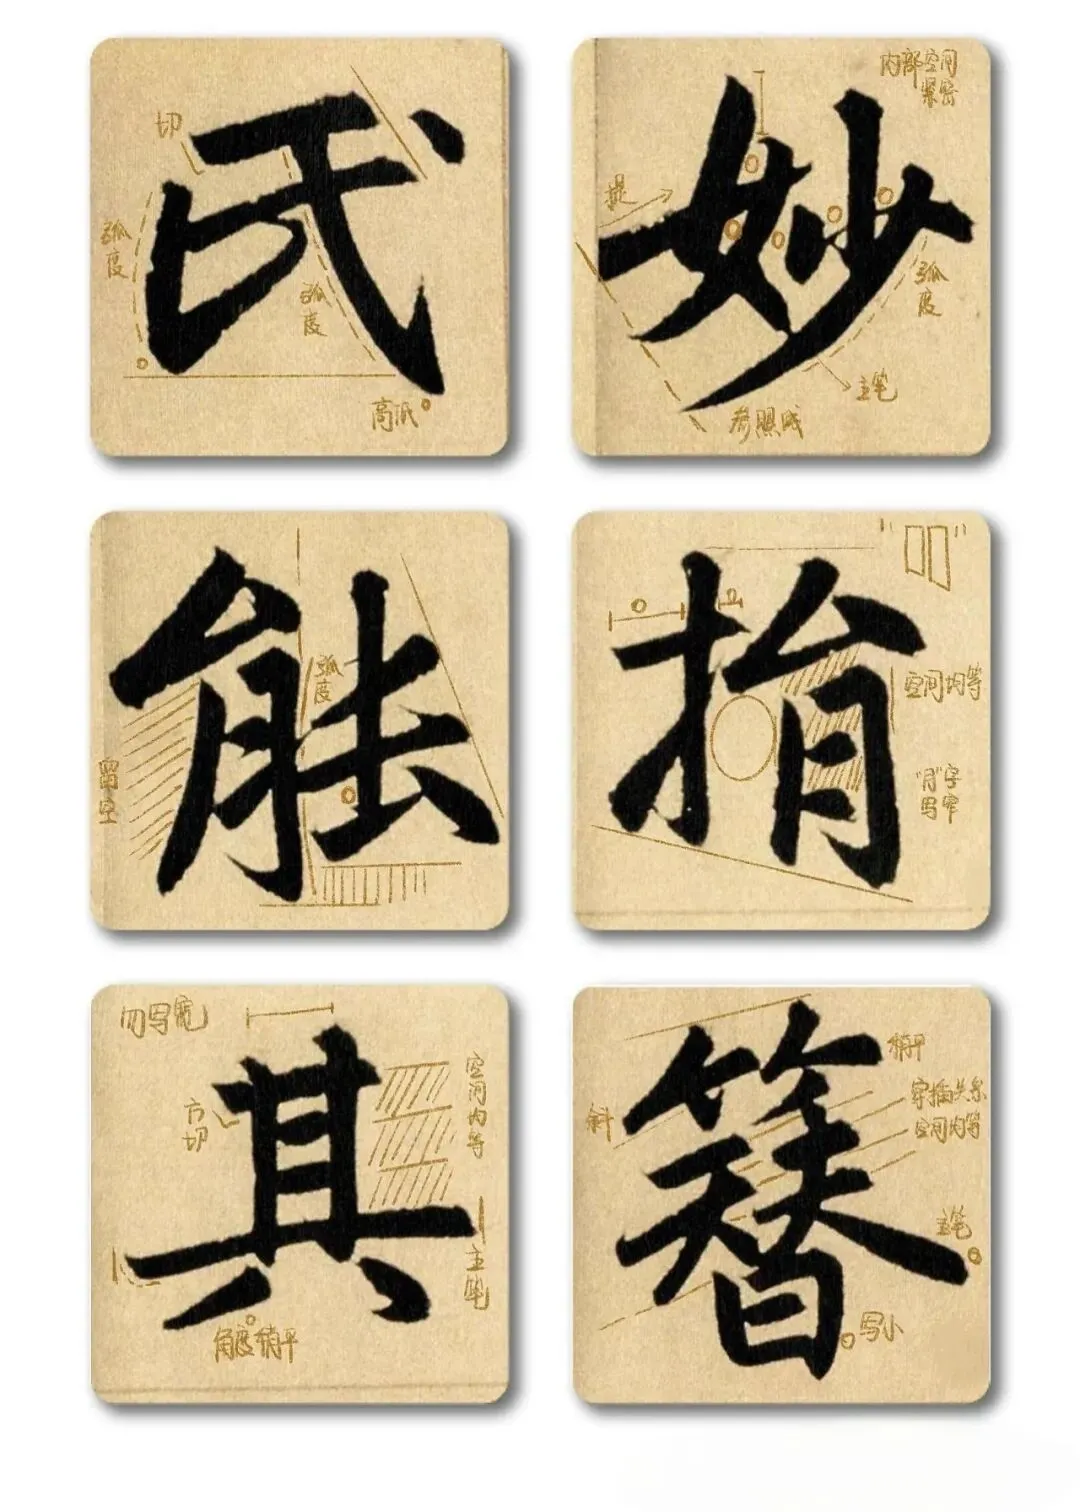 氏
切
弧度
弧度
高低
妙
内部空间
紧密
提
弧度
主笔
参照线
能
弧度
留空
指
"
"
空间均等
"月"字
写窄
其
勿写宽
方切
空间均等
主笔
角度稍平
簪
稍平
穿插关系
空间均等
斜
主笔
写小